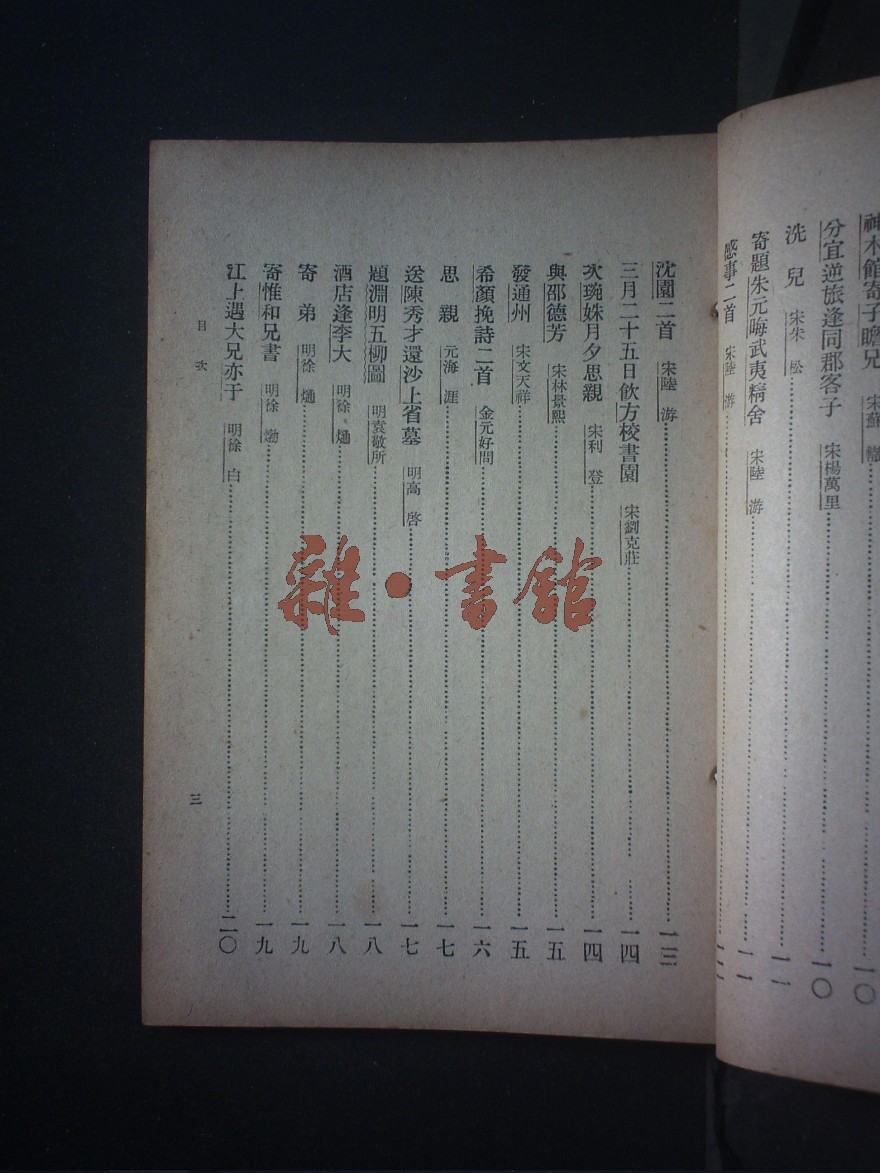 神木館寄子瞻兄 宋蘇 轍 一〇
分宜逆旅逢同郡客子 宋楊萬里 一〇
洗兒 宋朱 松 一一
寄題朱元晦武夷精舍 宋陸 游 一一
感事二首 宋陸 游
沈園二首 宋陸 游 一三
三月二十五日飲方校書園 宋劉克莊 一四
次琬妹月夕思親 宋利 登 一四
與邵德芳 宋林景熙 一五
發通州 宋文天祥 一五
希顏挽詩二首 金元好問 一六
思親 元海 涯 一七
送陳秀才還沙上省墓 明高 啓 一七
題淵明五柳圖 明袁敬所 一八
酒店逢李大 明徐 𤊹 一八
寄弟 明徐 𤊹 一九
寄惟和兄書 明徐 㶿 一九
江上遇大兄亦于 明徐 白 二〇
目次
三
雜·書館